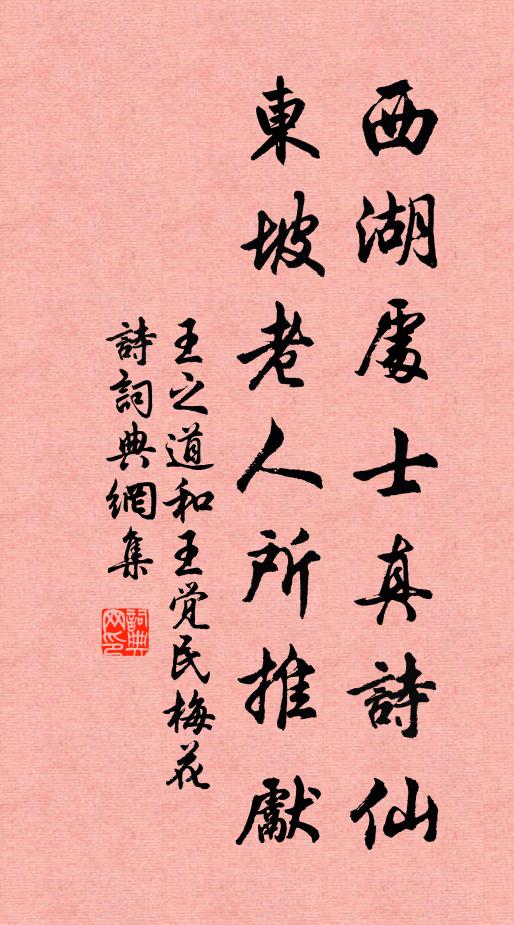 西湖處士真詩仙
東坡老人所推獻
王之道和王覺民梅花
詩詞典網集
詞典網印